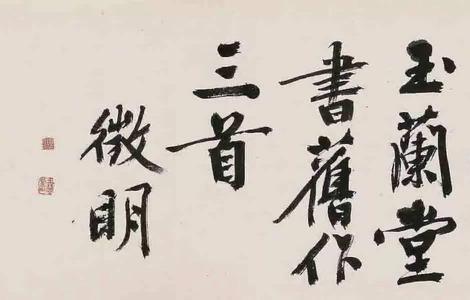 玉蘭堂
書舊作
三首
徵明